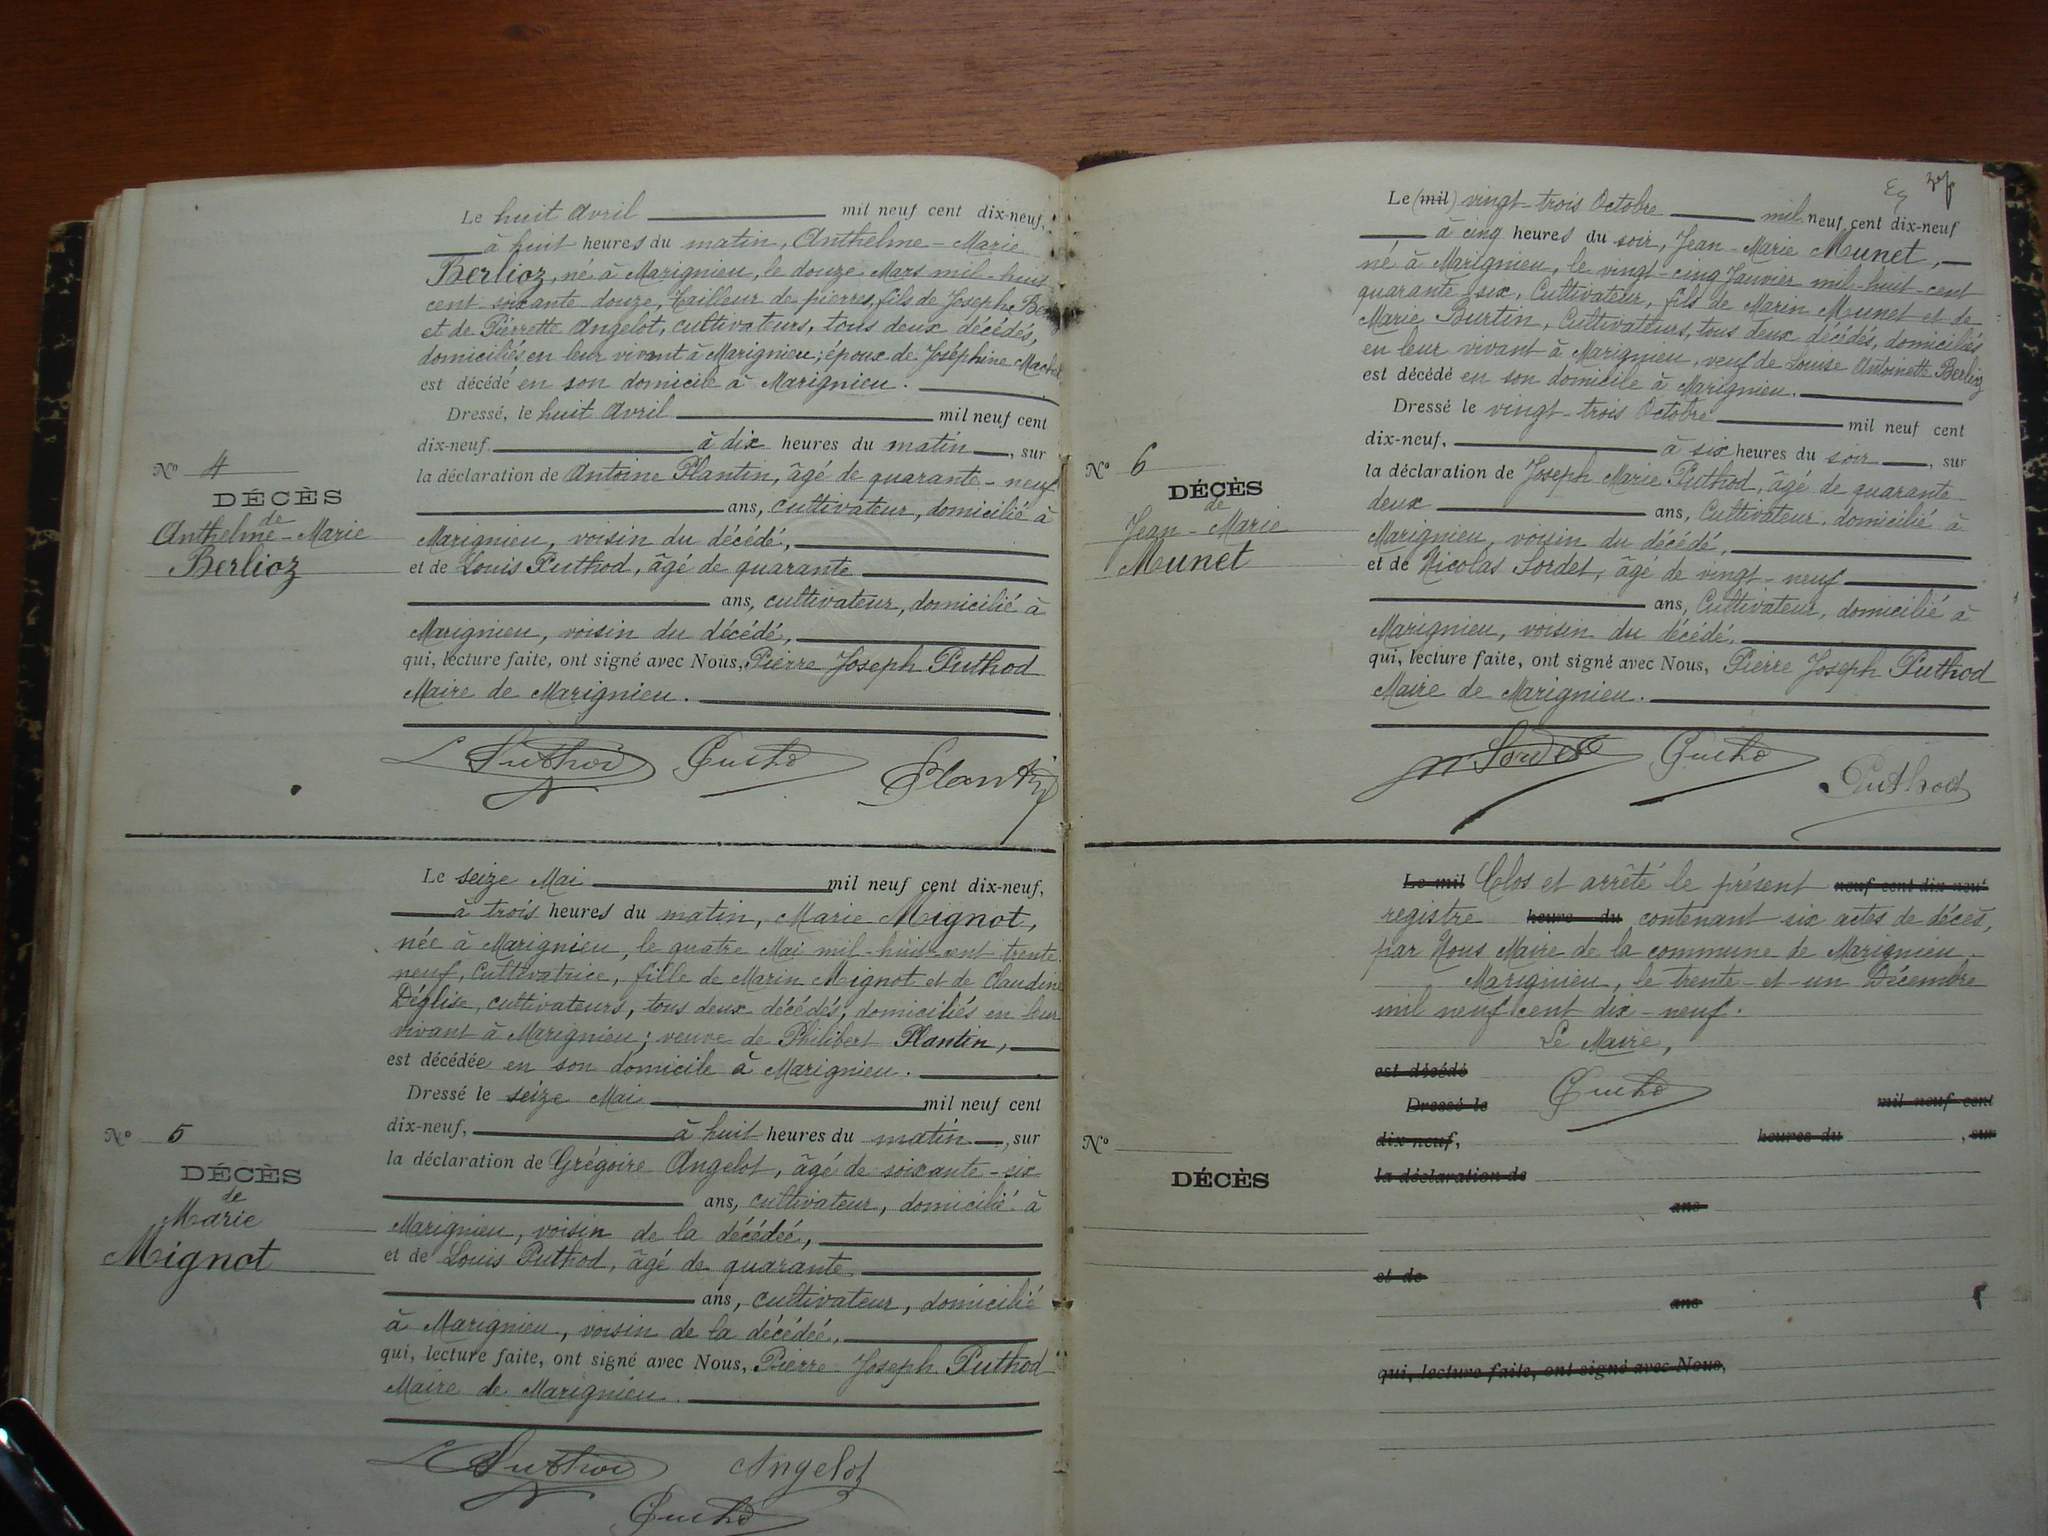 Le huit Avril mil neuf cent dix-neuf,
à huit heures du matin, Anthelme-Marie
Berlioz, né à Marignieu, le douze Mars mil-huit
cent soixante douze, Tailleur de pierres, fils de Joseph
et de Pierrette Angelot, cultivateurs, tous deux décédés,
domiciliés en leur vivant à Marignieu; époux de Joséphine
est décédé en son domicile à Marignieu.
Dressé, le huit Avril mil neuf cent
dix-neuf. à dix heures du matin, sur
la déclaration de Antoine Plantin, âgé de quarante-neuf
ans, cultivateur, domicilié à
Marignieu, voisin du décédé,
et de Louis Puthod, âgé de quarante
ans, cultivateur, domicilié à
Marignieu, voisin du décédé,
qui, lecture faite, ont signé avec Nous, Pierre Joseph Puthod
Maire de Marignieu.
Nº 4
DÉCÈS
de
Anthelme-Marie
Berlioz
L Puthod Plantin
Le seize Mai mil neuf cent dix-neuf,
à trois heures du matin, Marie Mignot,
née à Marignieu, le quatre Mai mil-huit-cent trente
neuf, Cultivatrice, fille de Marin Mignot et de Claudine
Déglise, cultivateurs, tous deux décédés, domiciliés en leur
vivant à Marignieu; veuve de Philibert Plantin,
est décédée en son domicile à Marignieu.
Dressé le seize Mai mil neuf cent
dix-neuf, à huit heures du matin, sur
la déclaration de Grégoire Angelot, âgé de soixante-six
ans, cultivateur, domicilié à
Marignieu, voisin de la décédée,
et de Louis Puthod, âgé de quarante
ans, cultivateur, domicilié
à Marignieu, voisin de la décédée,
qui, lecture faite, ont signé avec Nous, Pierre Joseph Puthod
Maire de Marignieu.
Nº 5
DÉCÈS
de
Marie
Mignot
L Puthod Angelot
Le (mil) vingt-trois Octobre mil neuf cent dix-neuf
à cinq heures du soir, Jean-Marie Munet,
né à Marignieu, le vingt-cinq Janvier mil-huit-cent
quarante-six, Cultivateur, fils de Marin Munet et de
Marie Burtin, Cultivateurs, tous deux décédés, domiciliés
en leur vivant à Marignieu, veuf de Louise Antoinette Berlioz
est décédé en son domicile à Marignieu.
Dressé le vingt-trois Octobre mil neuf cent
dix-neuf, à six heures du soir, sur
la déclaration de Joseph Marie Puthod, âgé de quarante-
deux ans, Cultivateur, domicilié à
Marignieu, voisin du décédé,
et de Nicolas Sordet, âgé de vingt-neuf
ans, Cultivateur, domicilié à
Marignieu, voisin du décédé,
qui, lecture faite, ont signé avec Nous, Pierre Joseph Puthod
Maire de Marignieu.
Nº 6
DÉCÈS
de
Jean-Marie
Munet
Sordet Puthod
Le mil Clos et arrêté le présent neuf cent dix-neuf
registre heure du contenant six actes de décès,
par Nous Maire de la commune de Marignieu.
Marignieu, le trente-et-un Décembre
mil neuf cent dix-neuf.
Le Maire,
est décédé
Dressé le mil neuf cent
dix-neuf, heures du, sur
la déclaration de
ans
et de
ans
qui, lecture faite, ont signé avec Nous,
Nº
DÉCÈS